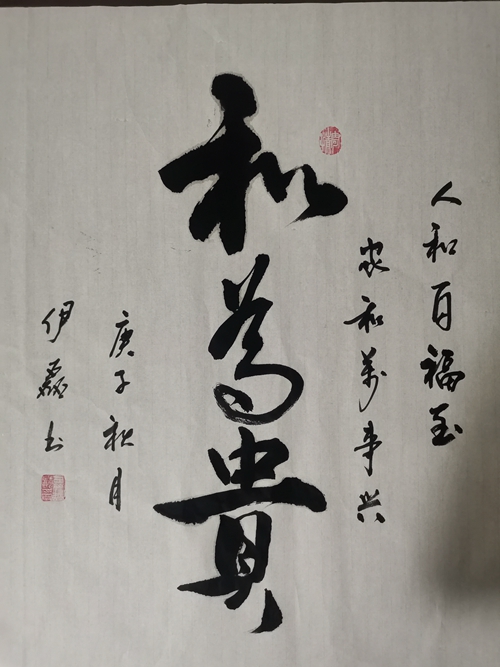 人和百福至
家和萬事兴
和為貴
庚子秋月
伊磊书